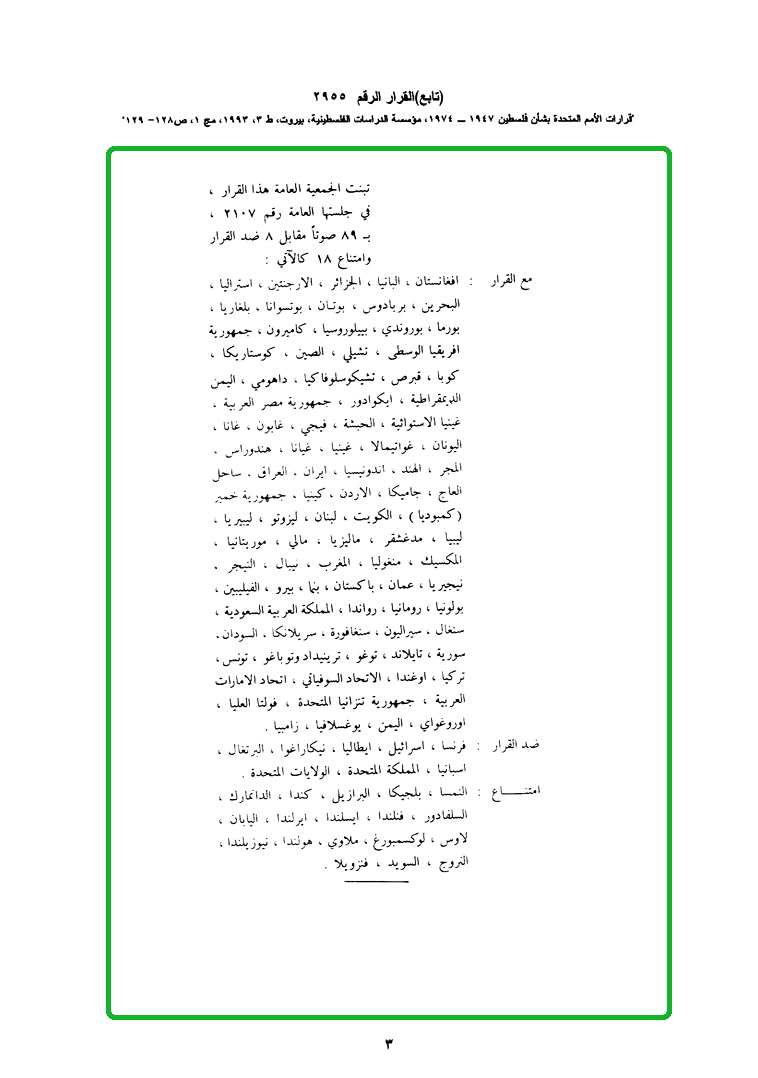 (تابع)القرار الرقم ٢٩٥٥
"قرارات الأمم المتحدة بشأن فلسطين ١٩٤٧ – ١٩٧٤، مؤسسة الدراسات الفلسطينية، بيروت، ط ٣، ١٩٩٣، مج ١، ص١٢٨– ١٢٩"
تبنت الجمعية العامة هذا القرار ،
في جلستها العامة رقم ٢١٠٧ ،
بـ ٨٩ صوتاً مقابل ٨ ضد القرار
وامتناع ١٨ كالآتي :
مع القرار : افغانستان ، البانيا ، الجزائر ، الارجنتين ، استراليا ،
البحرين ، بربادوس ، بوتان ، بوتسوانا ، بلغاريا ،
بورما ، بوروندي ، بييلوروسيا ، كاميرون ، جمهورية
افريقيا الوسطى ، تشيلي ، الصين ، كوستاريكا ،
كوبا ، قبرص ، تشيكوسلوفاكيا ، داهومي ، اليمن
الديمقراطية ، ايكوادور ، جمهورية مصر العربية ،
غينيا الاستوائية ، الحبشة ، فيجي ، غابون ، غانا ،
اليونان ، غواتيمالا ، غينيا ، غيانا ، هندوراس ،
المجر ، الهند ، اندونيسيا ، ايران ، العراق ، ساحل
العاج ، جاميكا ، الاردن ، كينيا ، جمهورية خمير
(كمبوديا) ، الكويت ، لبنان ، ليزوتو ، ليبيريا ،
ليبيا ، مدغشقر ، ماليزيا ، مالي ، موريتانيا ،
المكسيك ، منغوليا ، المغرب ، نيبال ، النيجر ،
نيجيريا ، عمان ، باكستان ، بنما ، بيرو ، الفيليبين ،
بولونيا ، رومانيا ، رواندا ، المملكة العربية السعودية ،
سنغال ، سيراليون ، سنغافورة ، سريلانكا ، السودان ،
سورية ، تايلاند ، توغو ، ترينيداد وتوباغو ، تونس ،
تركيا ، اوغندا ، الاتحاد السوفياتي ، اتحاد الامارات
العربية ، جمهورية تنزانيا المتحدة ، فولتا العليا ،
اوروغواي ، اليمن ، يوغسلافيا ، زامبيا .
ضد القرار : فرنسا ، اسرائيل ، ايطاليا ، نيكاراغوا ، البرتغال ،
اسبانيا ، المملكة المتحدة ، الولايات المتحدة .
امتنـــــاع : النمسا ، بلجيكا ، البرازيل ، كندا ، الدانمارك ،
السلفادور ، فنلندا ، ايسلندا ، ايرلندا ، اليابان ،
لاوس ، لوكسمبورغ ، ملاوي ، هولندا ، نيوزيلندا ،
النروج ، السويد ، فنزويلا .
٣